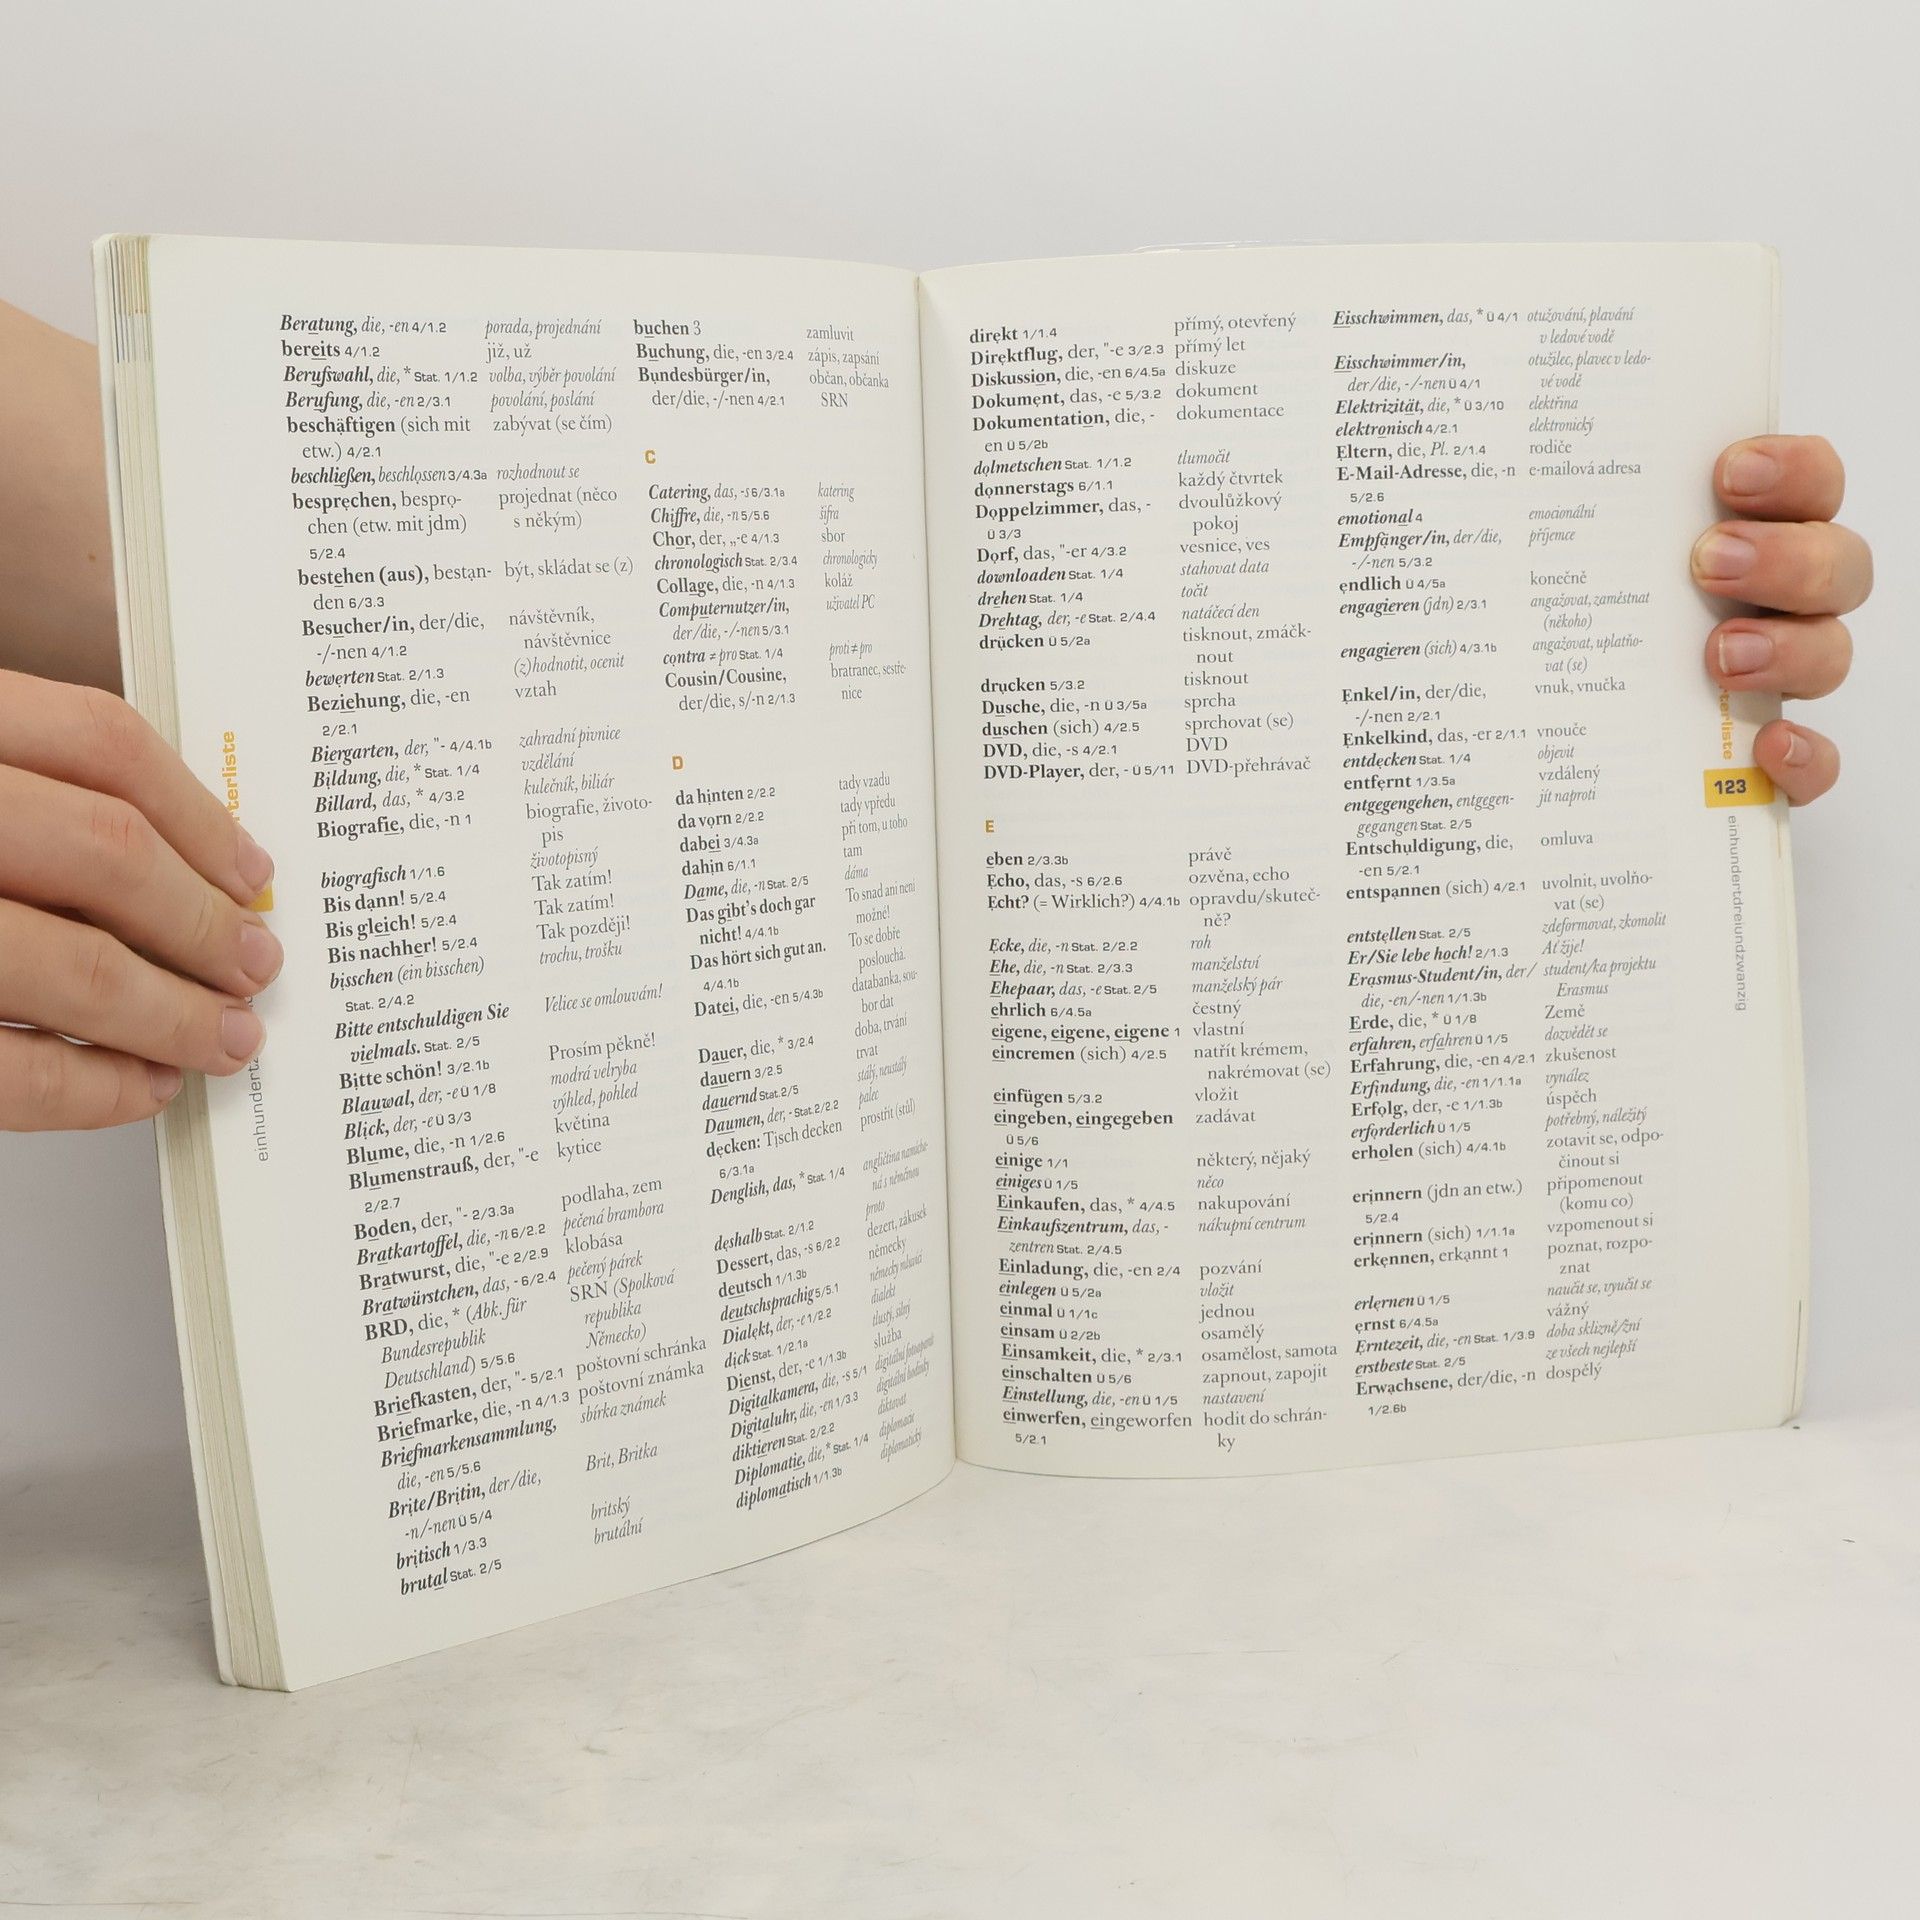 Beratung, die, -en 4/1.2 porada, projednání
bereits 4/1.2 již, už
Berufswahl, die, * Stat. 1/1.2 volba, výběr povolání
Berufung, die, -en 2/3.1 povolání, poslání
beschäftigen (sich mit zabývat (se čím)
etw.) 4/2.1
beschließen, beschlossen 3/4.3a rozhodnout se
besprechen, bespro- projednat (něco
chen (etw. mit jdm) s někým)
5/2.4
bestehen (aus), bestan- být, skládat se (z)
den 6/3.3
Besucher/in, der/die, návštěvník,
-/-nen 4/1.2 návštěvnice
bewerten Stat. 2/1.3 (z)hodnotit, ocenit
Beziehung, die, -en vztah
2/2.1
Biergarten, der, "- 4/4.1b zahradní pivnice
Bildung, die, * Stat. 1/4 vzdělání
Billard, das, * 4/3.2 kulečník, biliár
Biografie, die, -n 1 biografie, životo-
pis
biografisch 1/1.6 životopisný
Bis dann! 5/2.4 Tak zatím!
Bis gleich! 5/2.4 Tak zatím!
Bis nachher! 5/2.4 Tak později!
bisschen (ein bisschen) trochu, trošku
Stat. 2/4.2
Bitte entschuldigen Sie Velice se omlouvám!
vielmals. Stat. 2/5
Bitte schön! 3/2.1b Prosím pěkně!
Blauwal, der, -e Ü 1/8 modrá velryba
Blick, der, -e Ü 3/3 výhled, pohled
Blume, die, -n 1/2.6 květina
Blumenstrauß, der, "-e kytice
2/2.7
Boden, der, "- 2/3.3a podlaha, zem
Bratkartoffel, die, -n 6/2.2 pečená brambora
Bratwurst, die, "-e 2/2.9 klobása
Bratwürstchen, das, - 6/2.4 pečený párek
BRD, die, * (Abk. für SRN (Spolková
Bundesrepublik republika
Deutschland) 5/5.6 Německo)
Briefkasten, der, "- 5/2.1 poštovní schránka
Briefmarke, die, -n 4/1.3 poštovní známka
Briefmarkensammlung, sbírka známek
die, -en 5/5.6
Brite/Britin, der/die, Brit, Britka
-n/-nen Ü 5/4
britisch 1/3.3 britský
brutal Stat. 2/5 brutální
buchen 3 zamluvit
Buchung, die, -en 3/2.4 zápis, zapsání
Bundesbürger/in, občan, občanka
der/die, -/-nen 4/2.1 SRN
C
Catering, das, -s 6/3.1a katering
Chiffre, die, -n 5/5.6 šifra
Chor, der, „-e 4/1.3 sbor
chronologisch Stat. 2/3.4 chronologicky
Collage, die, -n 4/1.3 koláž
Computernutzer/in, uživatel PC
der/die, -/-nen 5/3.1
contra ≠ pro Stat. 1/4 proti ≠ pro
Cousin/Cousine, bratranec, sestře-
der/die, s/-n 2/1.3 nice
D
da hinten 2/2.2 tady vzadu
da vorn 2/2.2 tady vpředu
dabei 3/4.3a při tom, u toho
dahin 6/1.1 tam
Dame, die, -n Stat. 2/5 dáma
Das gibt's doch gar To snad ani není
nicht! 4/4.1b možné!
Das hört sich gut an. To se dobře
4/4.1b poslouchá.
Datei, die, -en 5/4.3b databanka, sou-
bor dat
Dauer, die, * 3/2.4 doba, trvání
dauern 3/2.5 trvat
dauernd Stat. 2/5 stálý, neustálý
Daumen, der, - Stat. 2/2.2 palec
decken: Tisch decken prostřít (stůl)
6/3.1a
Denglish, das, * Stat. 1/4 angličtina namíche-
ná s němčinou
deshalb Stat. 2/1.2 proto
Dessert, das, -s 6/2.2 dezert, zákusek
deutsch 1/1.3b německy
deutschsprachig 5/5.1 německy mluvící
Dialekt, der, -e 1/2.2 dialekt
dick Stat. 1/2.1a tlustý, silný
Dienst, der, -e 1/1.3b služba
Digitalkamera, die, -s 5/1 digitální fotoaparát
Digitaluhr, die, -en 1/3.3 digitální hodinky
diktieren Stat. 2/2.2 diktovat
Diplomatie, die, * Stat. 1/4 diplomacie
diplomatisch 1/1.3b diplomatický
terliste
einhundertz
direkt 1/1.4 přímý, otevřený
Direktflug, der, "-e 3/2.3 přímý let
Diskussion, die, -en 6/4.5a diskuze
Dokument, das, -e 5/3.2 dokument
Dokumentation, die, - dokumentace
en Ü 5/2b
dolmetschen Stat. 1/1.2 tlumočit
donnerstags 6/1.1 každý čtvrtek
Doppelzimmer, das, - dvoulůžkový
Ü 3/3 pokoj
Dorf, das, "-er 4/3.2 vesnice, ves
downloaden Stat. 1/4 stahovat data
drehen Stat. 1/4 točit
Drehtag, der, -e Stat. 2/4.4 natáčecí den
drücken Ü 5/2a tisknout, zmáčk-
nout
drucken 5/3.2 tisknout
Dusche, die, -n Ü 3/5a sprcha
duschen (sich) 4/2.5 sprchovat (se)
DVD, die, -s 4/2.1 DVD
DVD-Player, der, - Ü 5/11 DVD-přehrávač
E
eben 2/3.3b právě
Echo, das, -s 6/2.6 ozvěna, echo
Echt? (= Wirklich?) 4/4.1b opravdu/skuteč-
ně?
Ecke, die, -n Stat. 2/2.2 roh
Ehe, die, -n Stat. 2/3.3 manželství
Ehepaar, das, -e Stat. 2/5 manželský pár
ehrlich 6/4.5a čestný
eigene, eigene, eigene 1 vlastní
eincremen (sich) 4/2.5 natřít krémem,
nakrémovat (se)
einfügen 5/3.2 vložit
eingeben, eingegeben zadávat
Ü 5/6
einige 1/1 některý, nějaký
einiges Ü 1/5 něco
Einkaufen, das, * 4/4.5 nakupování
Einkaufszentrum, das, - nákupní centrum
zentren Stat. 2/4.5
Einladung, die, -en 2/4 pozvání
einlegen Ü 5/2a vložit
einmal Ü 1/1c jednou
einsam Ü 2/2b osamělý
Einsamkeit, die, * 2/3.1 osamělost, samota
einschalten Ü 5/6 zapnout, zapojit
Einstellung, die, -en Ü 1/5 nastavení
einwerfen, eingeworfen hodit do schrán-
5/2.1 ky
Eisschwimmen, das, * Ü 4/1 otužování, plavání
v ledové vodě
Eisschwimmer/in, otužilec, plavec v ledo-
der/die, -/-nen Ü 4/1 vé vodě
Elektrizität, die, * Ü 3/10 elektřina
elektronisch 4/2.1 elektronický
Eltern, die, Pl. 2/1.4 rodiče
E-Mail-Adresse, die, -n e-mailová adresa
5/2.6
emotional 4 emocionální
Empfänger/in, der/die, příjemce
-/-nen 5/3.2
endlich Ü 4/5a konečně
engagieren (jdn) 2/3.1 angažovat, zaměstnat
(někoho)
engagieren (sich) 4/3.1b angažovat, uplatňo-
vat (se)
Enkel/in, der/die, vnuk, vnučka
-/-nen 2/2.1
Enkelkind, das, -er 2/1.1 vnouče
entdecken Stat. 1/4 objevit
entfernt 1/3.5a vzdálený
entgegengehen, entgegen- jít naproti
gegangen Stat. 2/5
Entschuldigung, die, omluva
-en 5/2.1
entspannen (sich) 4/2.1 uvolnit, uvolňo-
vat (se)
entstellen Stat. 2/5 zdeformovat, zkomolit
Er/Sie lebe hoch! 2/1.3 Ať žije!
Erasmus-Student/in, der/ student/ka projektu
die, -en/-nen 1/1.3b Erasmus
Erde, die, * Ü 1/8 Země
erfahren, erfahren Ü 1/5 dozvědět se
Erfahrung, die, -en 4/2.1 zkušenost
Erfindung, die, -en 1/1.1a vynález
Erfolg, der, -e 1/1.3b úspěch
erforderlich Ü 1/5 potřebný, náležitý
erholen (sich) 4/4.1b zotavit se, odpo-
činout si
erinnern (jdn an etw.) připomenout
5/2.4 (komu co)
erinnern (sich) 1/1.1a vzpomenout si
erkennen, erkannt 1 poznat, rozpo-
znat
erlernen Ü 1/5 naučit se, vyučit se
ernst 6/4.5a vážný
Erntezeit, die, -en Stat. 1/3.9 doba sklizně/žní
erstbeste Stat. 2/5 ze všech nejlepší
Erwachsene, der/die, -n dospělý
1/2.6b
terliste
123
einhundertdreiundzwanzig